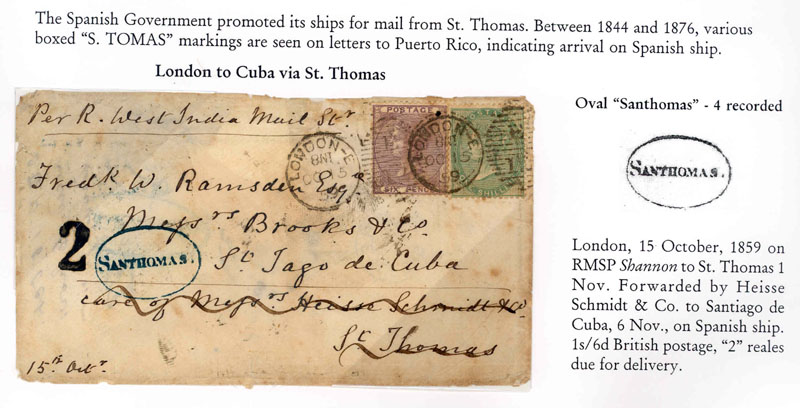 The Spanish Government promoted its ships for mail from St. Thomas. Between 1844 and 1876, various
boxed "S. TOMAS" markings are seen on letters to Puerto Rico, indicating arrival on Spanish ship.
London to Cuba via St. Thomas
Per R. West India Mail Str
POSTAGE
SIX PENCE
SHILLING
LONDON-E
LONDON-E
Fredk W. Ramsden Esqr
Messrs Brooks & Co.
St Jago de Cuba
care of Messrs Heisse Schmidt & Co
St Thomas
2
SANTHOMAS.
15th Octr
Oval "Santhomas" - 4 recorded
SANTHOMAS.
London, 15 October, 1859 on
RMSP Shannon to St. Thomas 1
Nov. Forwarded by Heisse
Schmidt & Co. to Santiago de
Cuba, 6 Nov., on Spanish ship.
1s/6d British postage, "2" reales
due for delivery.